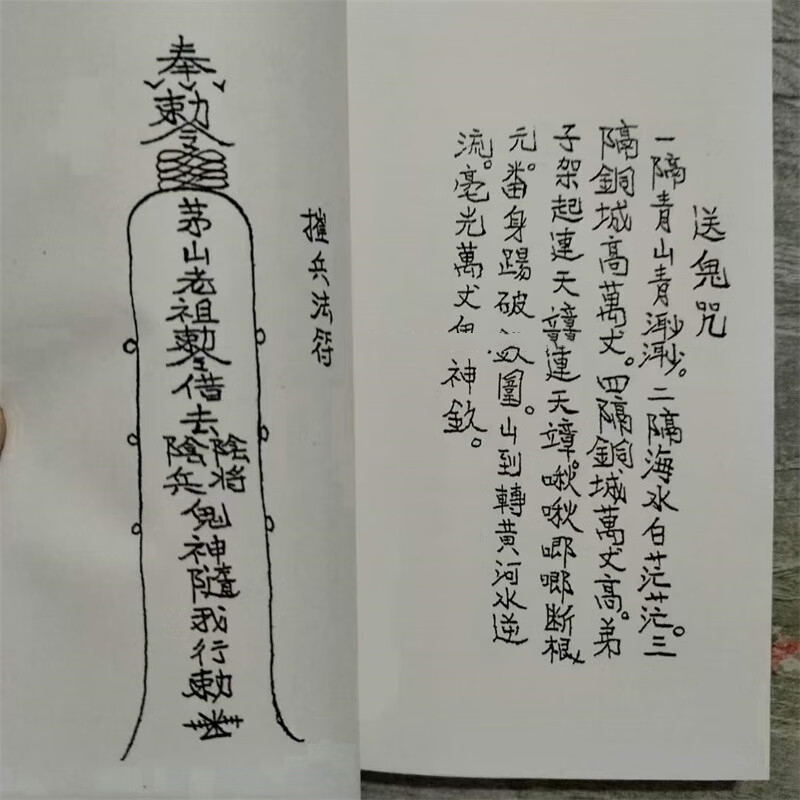 送鬼咒
一隔青山青渺渺。二隔海水白茫茫。三
隔銅城高萬丈。四隔銅城萬丈高。弟
子架起連天連天璋。啾啾唧唧断根
元。番身踢破圍。山到轉黄河水逆
流。毫光萬丈神欽。
摧兵法符
奉勅令
茅山老祖勅令借去陰将陰兵鬼神隨我行勅